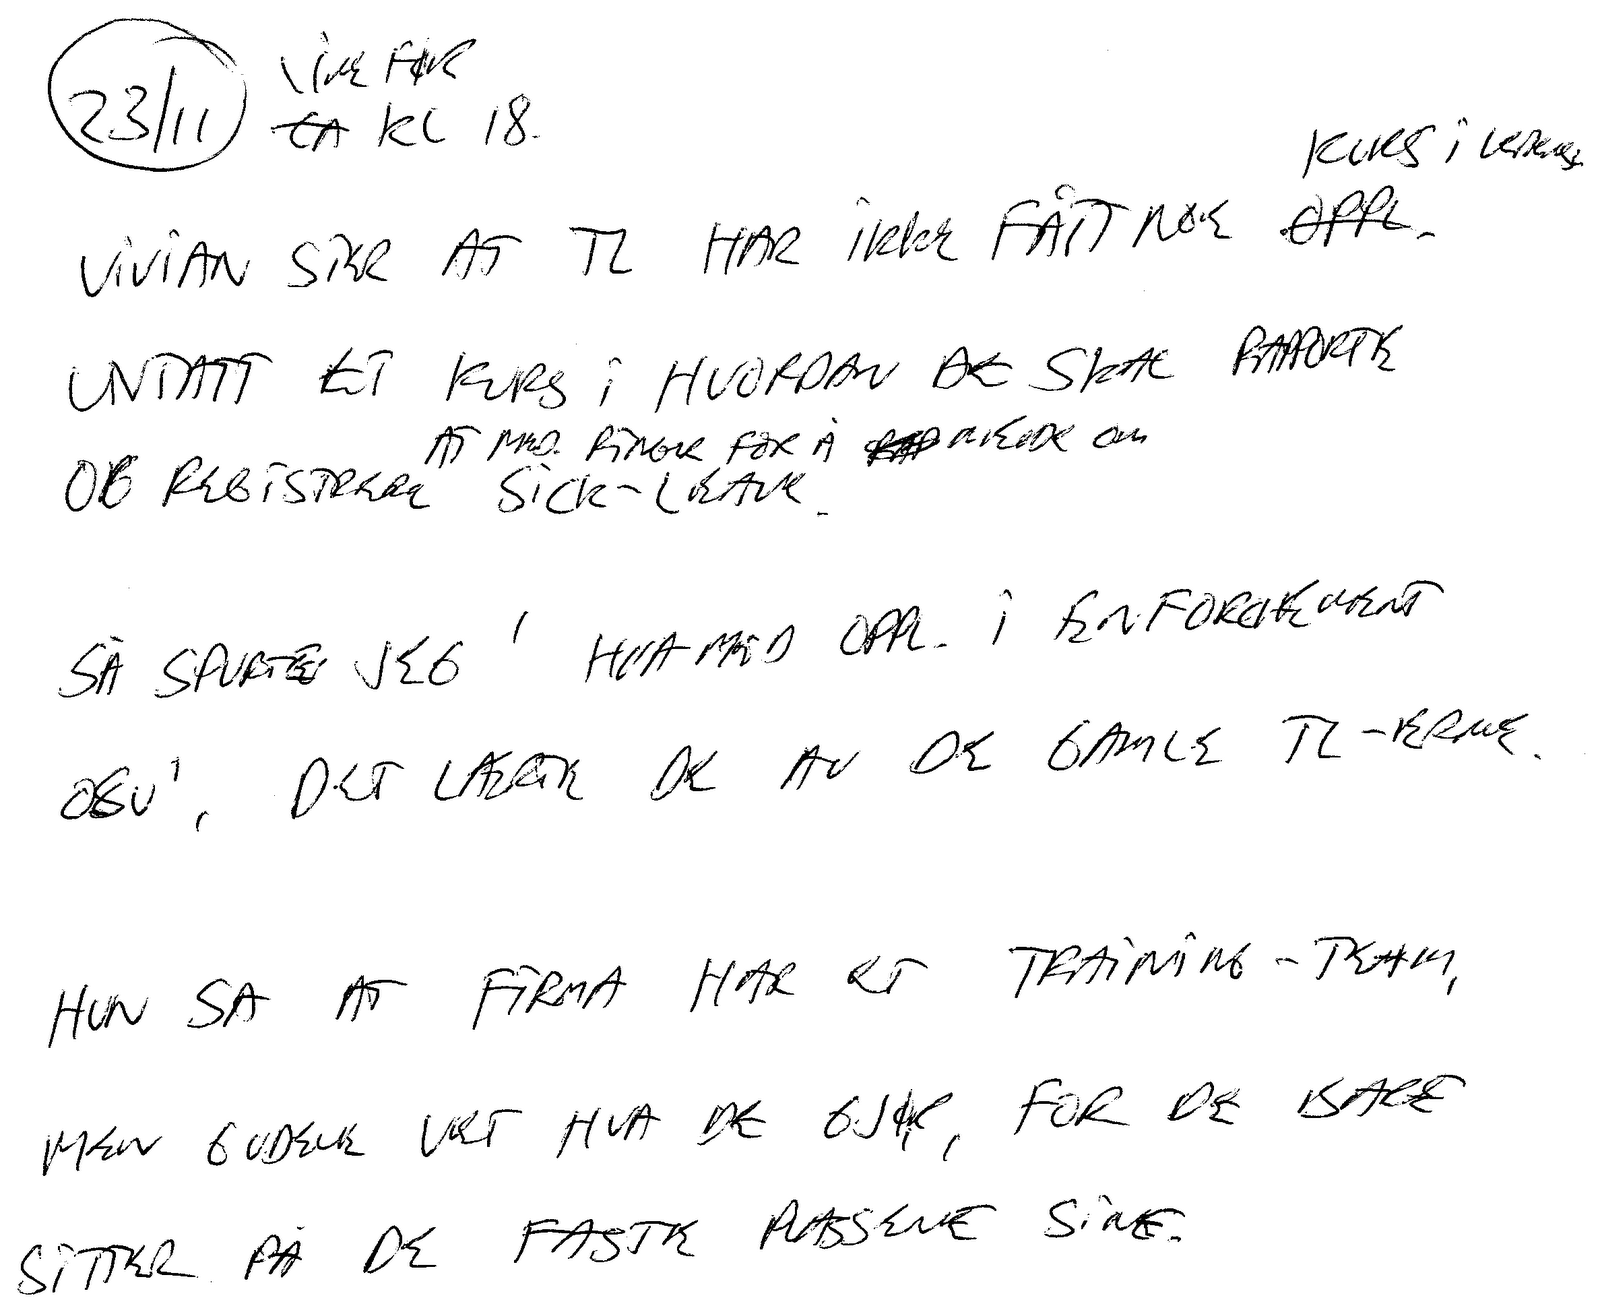 23/11 LIKE FØR
CA KL 18.
KURS I
VIVIAN SIER AT TL HAR IKKE FÅTT NOE OPPL.
UNTATT ET KURS I HVORDAN DE SKAL RAPPORTE
AT MED. RINGER FOR Å MELDE OM
OG REGISTRERE SICK-LEAVE.
SÅ SPURTE JEG ' HVA MED OPPL. I ENFORCEMENT
OSV', DET LÆRTE DE AV DE GAMLE TL-ERNE.
HUN SA AT FIRMA HAR ET TRAINING-TEAM,
MEN GUDENE VET HVA DE GJØR, FOR DE BARE
SITTER PÅ DE FASTE PLASSENE SINE.